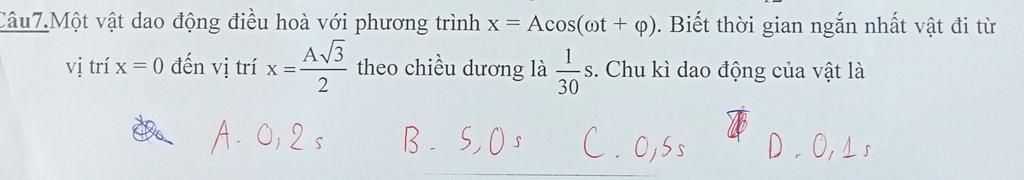 Câu7.Một vật dao động điều hoà với phương trình x = Acos(ωt + φ). Biết thời gian ngắn nhất vật đi từ
vị trí x = 0 đến vị trí x = A√3/2 theo chiều dương là 1/30 s. Chu kì dao động của vật là
A. 0,2s B. 5,0s C. 0,5s D. 0,1s